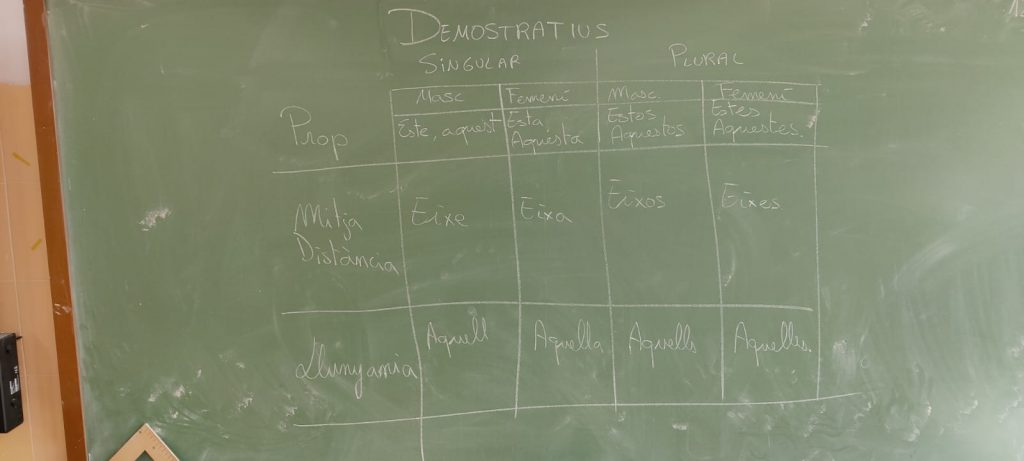 DEMOSTRATIUS
SINGULAR PLURAL
Masc Femení Masc. Femení
Prop Este, aquest Esta Aquesta Estos Aquestos Estes Aquestes.
Mitja Distància Eixe Eixa Eixos Eixes
Llunyania Aquell Aquella Aquells Aquelles.